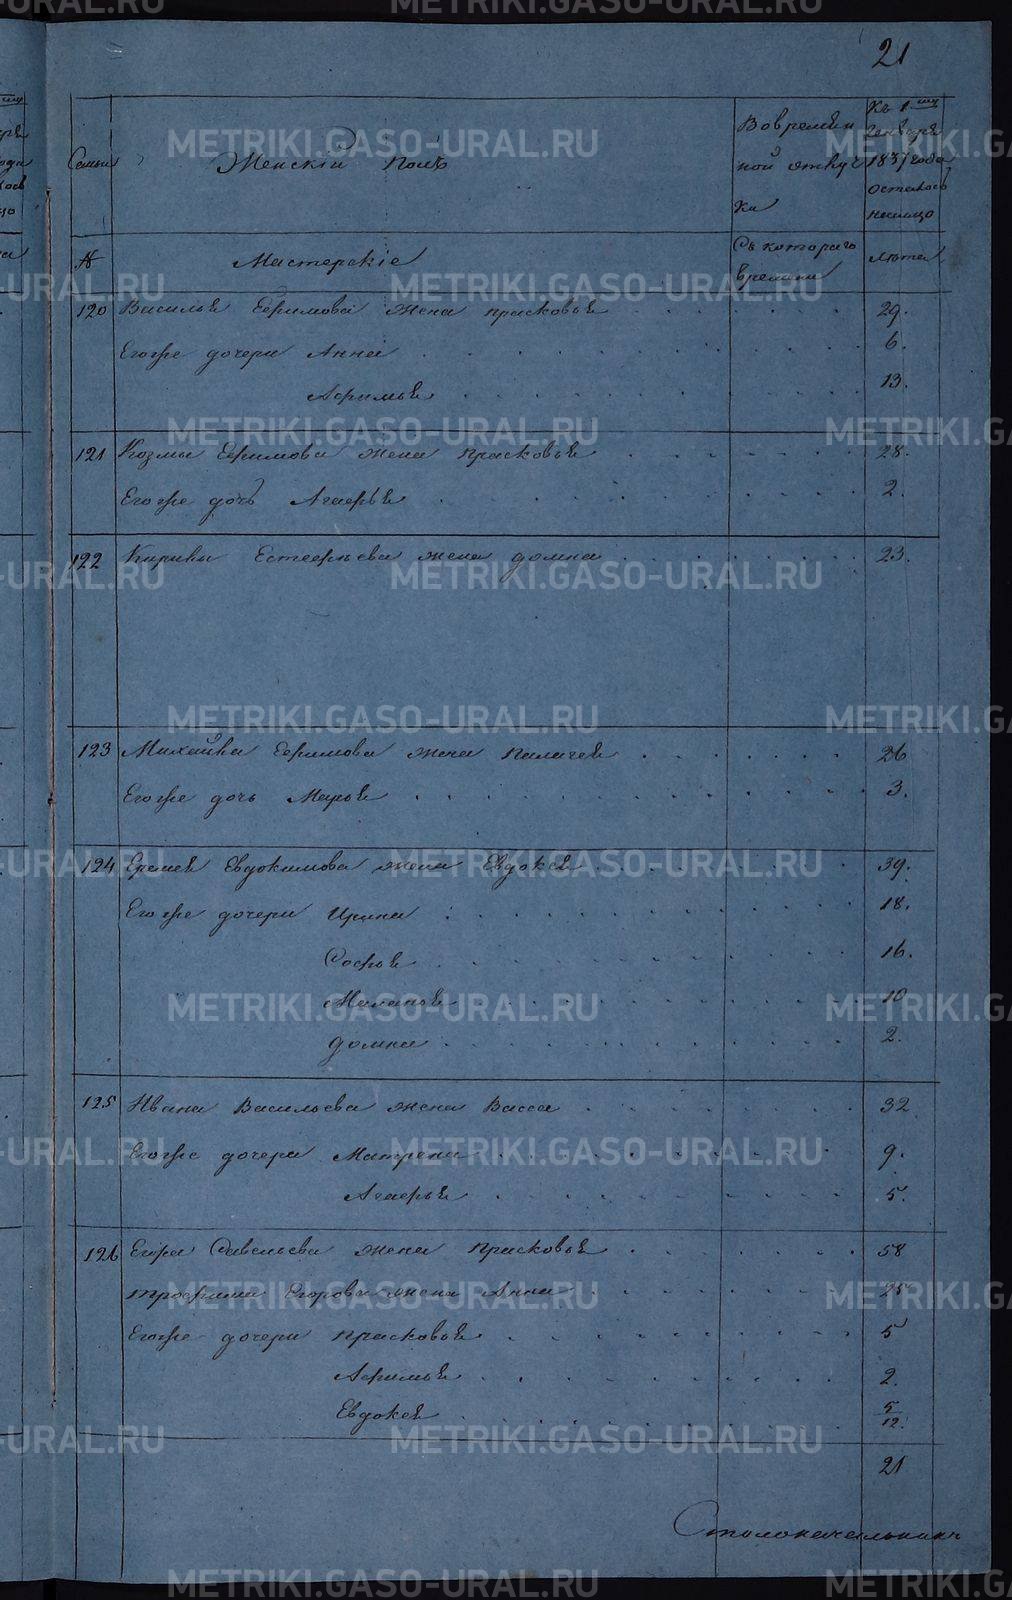 21
Семьи
Женскій полъ
Во времен
ной отлуч
ки
Къ 1му
Генваря
1837 года
осталось
налицо
№
Мастерскіе
Съ котораго
времени
Лета
120 Василья Ефимова жена прасковья 29.
Егоже дочери Анна 6.
Афимья 13.
121 Козмы Ефимова жена прасковья 28.
Егоже дочь Агафья 2.
122 Кирилы Естефьева жена домна 23.
123 Михайла Ефимова жена Палагея 26
Егоже дочь Марья 3.
124 Еремея Евдокимова жена Евдокея 39.
Егоже дочери Ирина 18.
Софья 16.
Маланья 10
домна 2.
125 Ивана Васильева жена Васса 32
Егоже дочери Матрена 9.
Агафья 5.
126 Егора Савельева жена прасковья 58
трофима Егорова жена Анна 25
Егоже дочери прасковья 5
Афимья 2.
Евдокея 5/12.
21
Столоначальникъ
METRIKI.GASO-URAL.RU